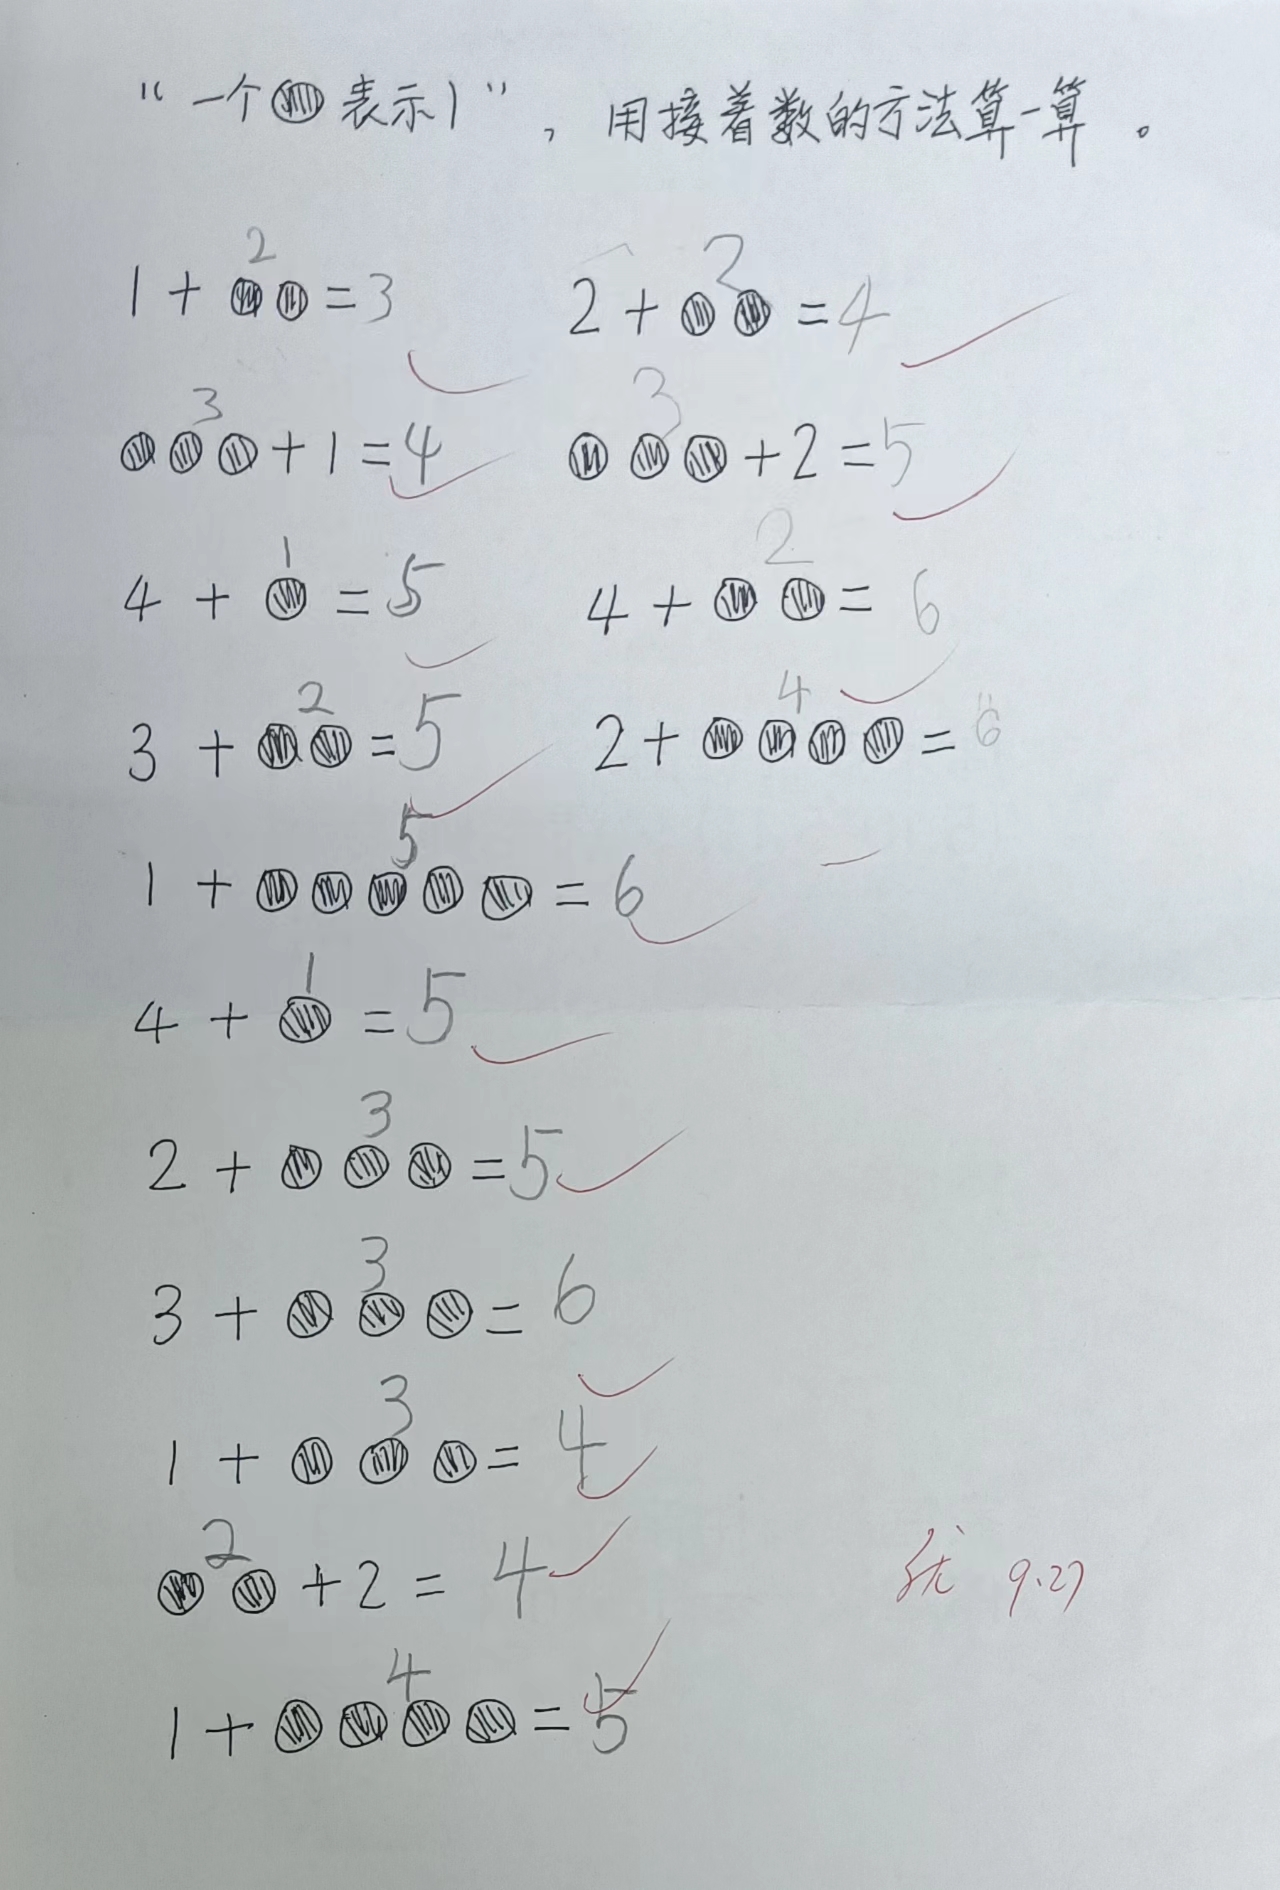 “一个●表示1”，用接着数的方法算一算。
2 2
1+●●=3 2+●●=4
3 3
●●●+1=4 ●●●+2=5
1 2
4+●=5 4+●●=6
2 4
3+●●=5 2+●●●●=6
5
1+●●●●●=6
1
4+●=5
3
2+●●●=5
3
3+●●●=6
3
1+●●●=4
2
●●+2=4
优 9.27
4
1+●●●●=5